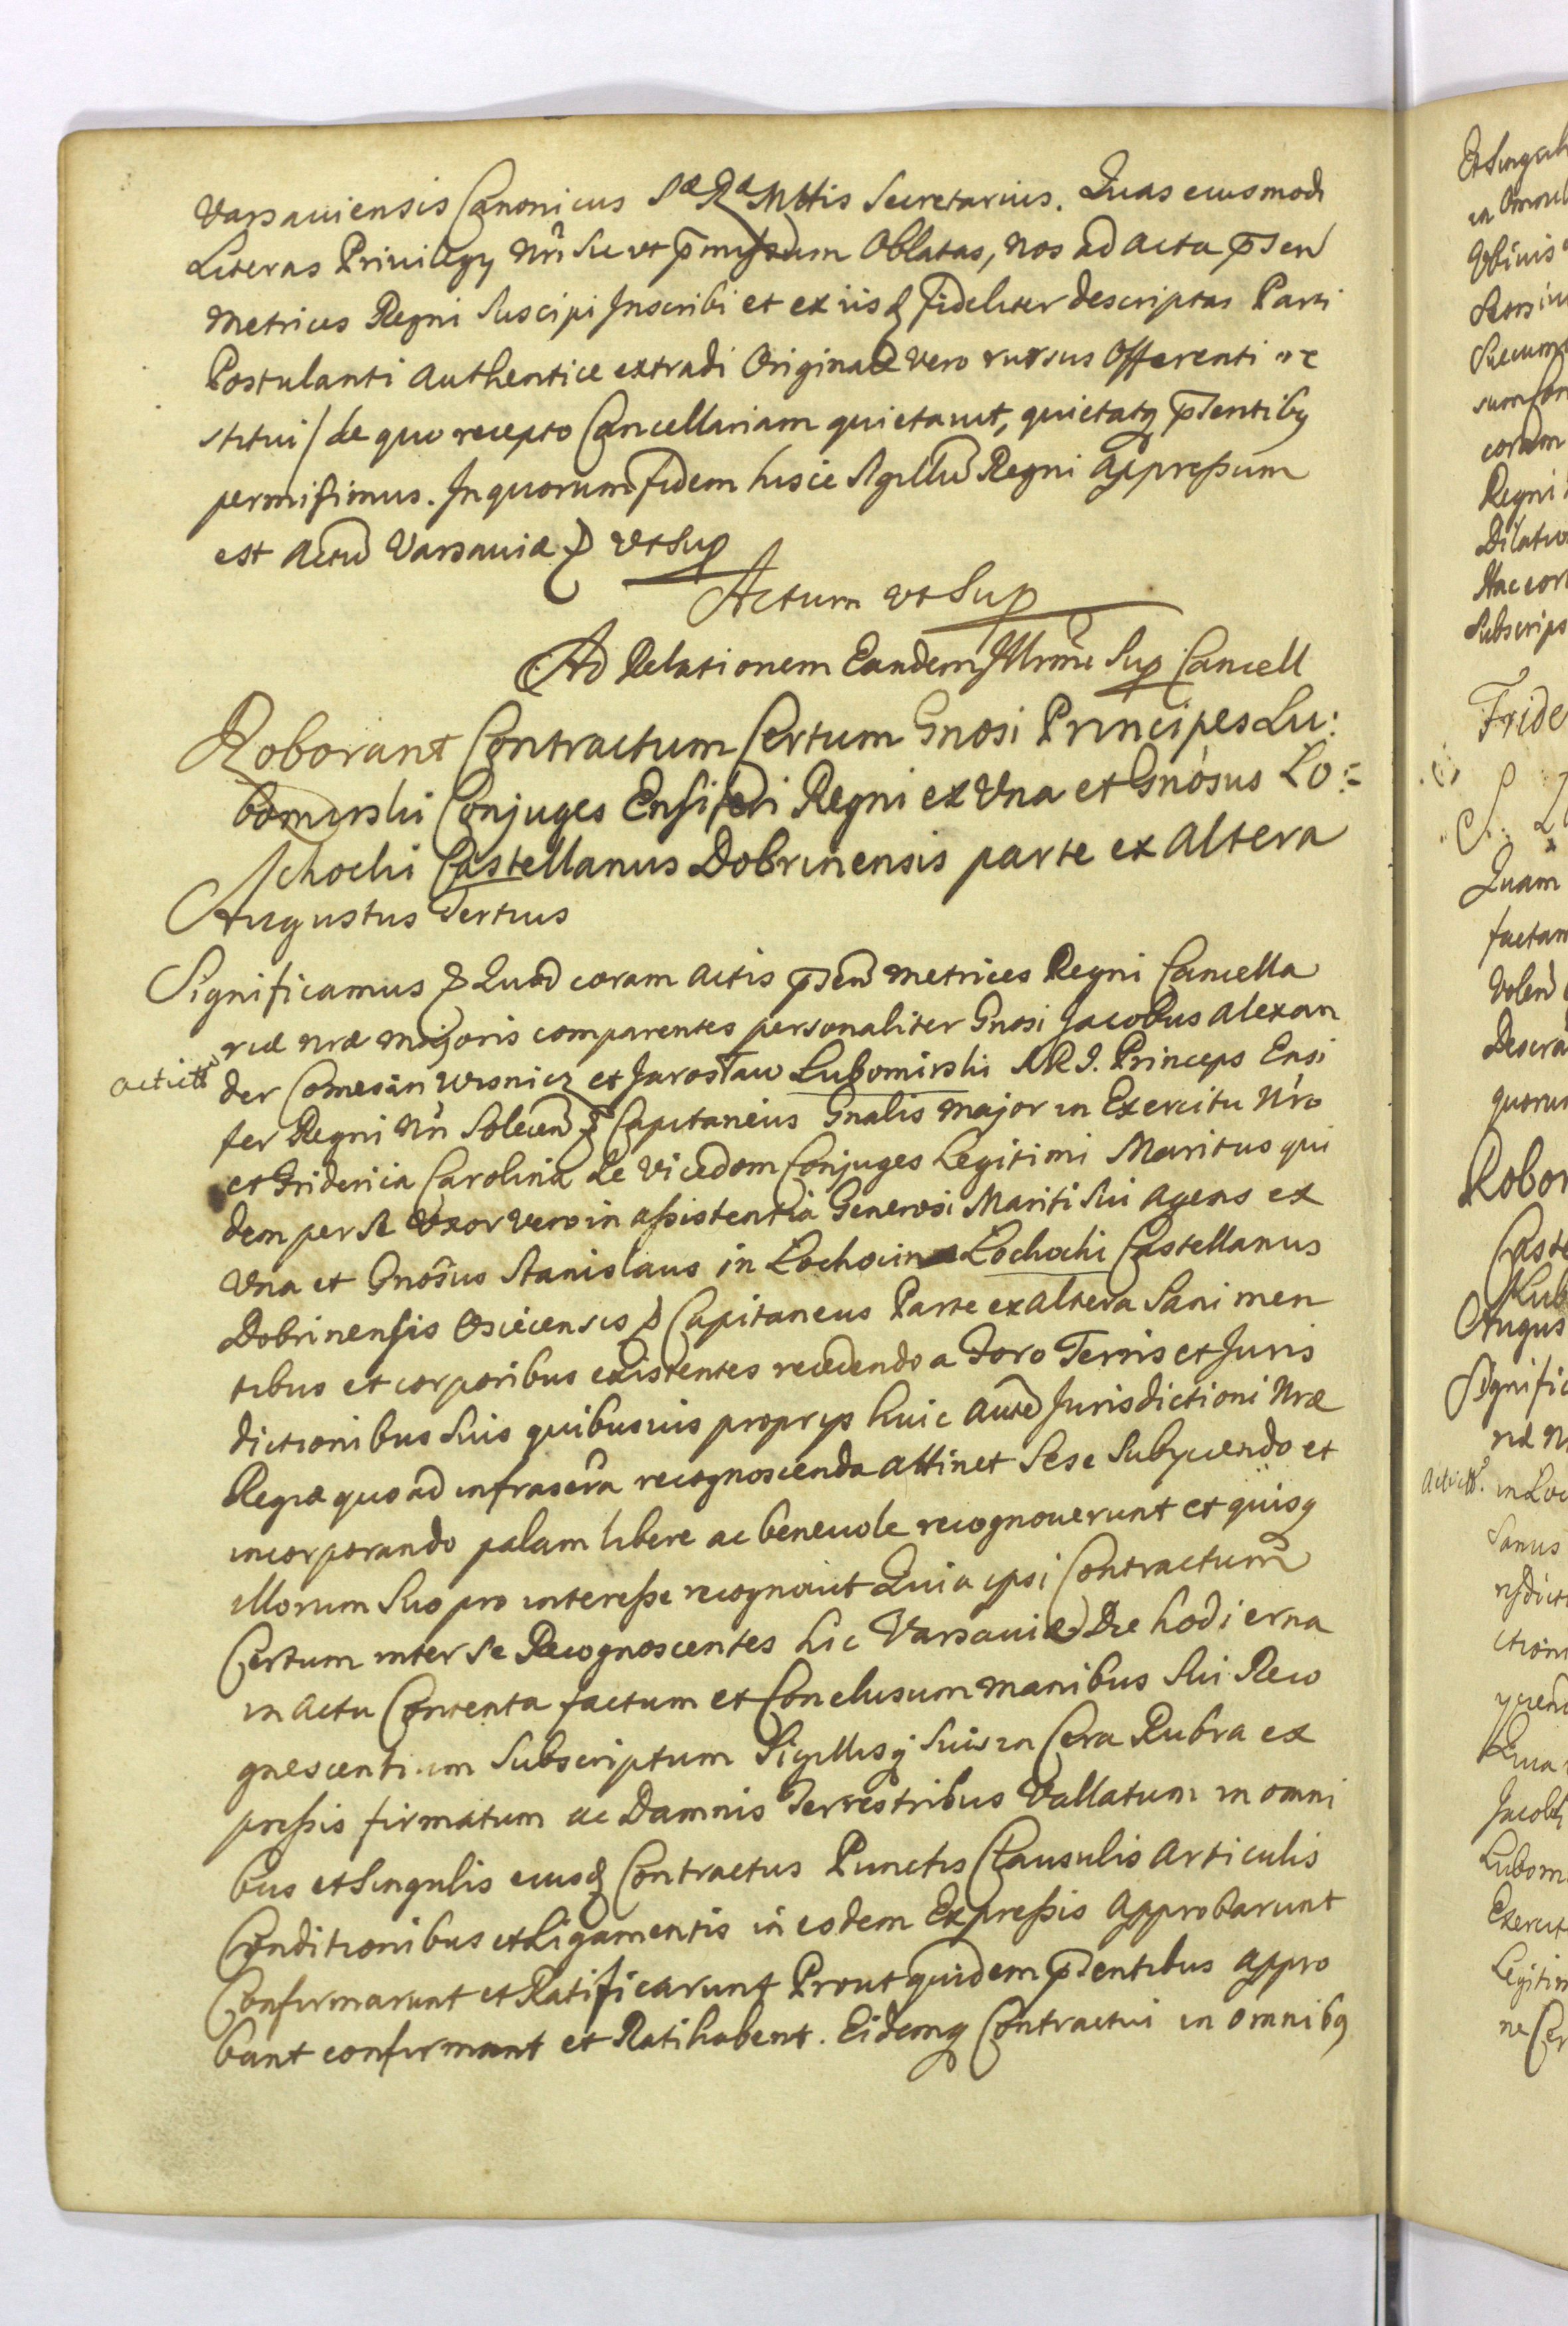 Varsaviensis Canonicus Sæ Ræ Mttis Secretarius. Quas eiusmodi
Literas Privilegÿ Nri sic ut p̄missum Oblatas, nos ad acta p̄sen
Metrices Regni Suscipi Inscribi et ex iisd fideliter descriptas Parti
Postulanti authentice extradi Originale vero rursus Offerenti re
stitui / de quo recepto Cancellariam quietavit, quietatq p̄sentibq
permisimus. In quorum fidem hisce Sigillu Regni appressum
est actu Varsaviæ ut sup
Actum ut Sup
Ad Relationem Eandem Illrme Sup Cancell
Roborant Contractum Certum Gnosi Principes Lu:
bomirski Conjuges Ensiferi Regni ex Una et Gnosus Lo:
schocki Castellanus Dobrinensis parte ex altera
Augustus Tertius
Significamus Quod coram actis p̄sen metrices Regni Cancella
riæ nræ majoris comparentes personaliter Gnosi Jacobus Alexan
der Comes in Wisnicz et Jaroslaw Lubomirski S.R.I. Princeps Ensi
fer Regni Nri Solecen Capitaneus Gnalis major in Exercitu Nro
et Friderica Carolina de Vicedom Conjuges Legitimi Maritus qui
dem per se Uxor vero in assistentia Generosi Mariti sui agens ex
Una et Gnosus Stanislaus in Lochocin Lochocki Castellanus
Dobrinensis Osiecensis Capitaneus Parte ex altera Sani men
tibus et corporibus existentes recedendo a Foro Terris et Juris
dictionibus suis quibusuis proprÿs huic aute Jurisdictioni Nræ
Regiæ quo ad infrascra recognoscenda attinet sese subÿciendo et
incorporando palam libere ac benevole recognoverunt et quisq
illorum suo pro interesse recognovit Quia ipsi Contractum
Certum inter se Recognoscentes hic Varsaviæ Die hodierna
in actu Contenta factum et Conclusum manibus sui Reco
gnescentium subscriptum Sigillisq suis in Cera Rubra ex
pressis firmatum ac Damnis Terrestribus Vallatum in omni
bus et singulis eiusd Contractus Punctis Clausulis articulis
Conditionibus et Ligamentis in eodem Expressis approbarunt
Confirmarunt et Ratificarunt Prout quidem p̄sentibus appro
bant confirmant et Ratihabent. Eidemq Contractui in omnibq
acticat
Et singul
Regni
Subscrips
Fride
Quam
factam
Volen
quorum
Robor
Caste
Augus
Signific
in Loc
Sanus
Quia
Jacob
Lubom
Exercit
Legitim